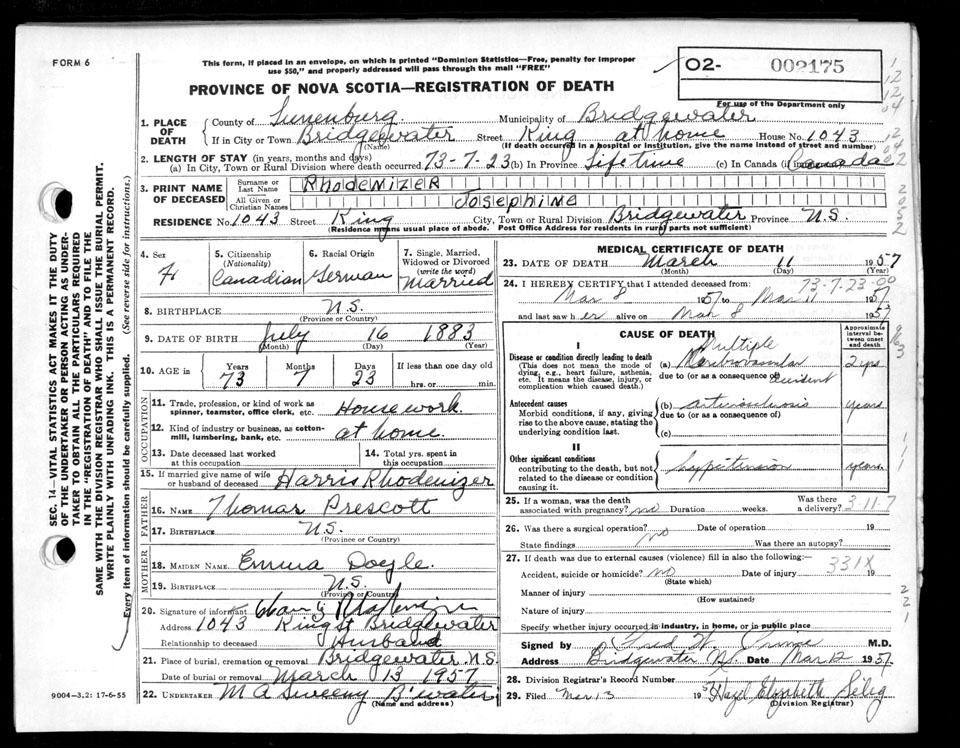 FORM 6
This form, if placed in an envelope, on which is printed "Dominion Statistics—Free, penalty for improper
use $50," and properly addressed will pass through the mail "FREE"
02- 002175
PROVINCE OF NOVA SCOTIA—REGISTRATION OF DEATH
For use of the Department only
1. PLACE OF DEATH
County of Lunenburg Municipality of Bridgewater
If in City or Town Bridgewater Street King at home House No. 1043
(Name) (If death occurred in a hospital or institution, give the name instead of street and number)
2. LENGTH OF STAY (in years, months and days)
(a) In City, Town or Rural Division where death occurred 73-7-23 (b) In Province Lifetime (c) In Canada (if immigrant) Canada
3. PRINT NAME OF DECEASED
Surname or Last Name RHODENIZER
All Given or Christian Names JOSEPHINE
RESIDENCE No. 1043 Street King City, Town or Rural Division Bridgewater Province N.S.
(Residence means usual place of abode. Post Office Address for residents in rural parts not sufficient)
4. Sex F
5. Citizenship (Nationality) Canadian
6. Racial Origin German
7. Single, Married, Widowed or Divorced (write the word) Married
8. BIRTHPLACE N.S.
(Province or Country)
9. DATE OF BIRTH July 16 1883
(Month) (Day) (Year)
10. AGE in Years 73 Months 7 Days 23 If less than one day old
hrs. or min.
OCCUPATION
11. Trade, profession, or kind of work as spinner, teamster, office clerk, etc. Housework.
12. Kind of industry or business, as cotton-mill, lumbering, bank, etc. at home.
13. Date deceased last worked at this occupation
14. Total yrs. spent in this occupation
15. If married give name of wife or husband of deceased Harris Rhodenizer
FATHER
16. NAME Thomas Prescott
17. BIRTHPLACE N.S.
(Province or Country)
MOTHER
18. MAIDEN NAME Emma Doyle.
19. BIRTHPLACE N.S.
(Province or Country)
20. Signature of informant
Address 1043 King St Bridgewater
Relationship to deceased Husband
21. Place of burial, cremation or removal Bridgewater N.S.
Date of burial or removal March 13 1957
22. UNDERTAKER M A Sweeny B'water
(Name and address)
MEDICAL CERTIFICATE OF DEATH
23. DATE OF DEATH March 11 1957
(Month) (Day) (Year)
73-7-23-00
24. I HEREBY CERTIFY that I attended deceased from:
Mar 8 1957 to Mar 11 1957
and last saw her alive on Mar 8 1957
CAUSE OF DEATH
Approximate interval between onset and death
I
Disease or condition directly leading to death
(This does not mean the mode of dying, e.g., heart failure, asthenia, etc. It means the disease, injury, or complication which caused death.)
(a) Multiple Cerebrovascular 2 yrs
due to (or as a consequence of) accident
Antecedent causes
Morbid conditions, if any, giving rise to the above cause, stating the underlying condition last.
(b) arteriosclerosis years
due to (or as a consequence of)
(c)
II
Other significant conditions
contributing to the death, but not related to the disease or condition causing it.
hypertension years.
25. If a woman, was the death associated with pregnancy? no Duration weeks. Was there a delivery? 3-11-7
26. Was there a surgical operation? no Date of operation 19
State findings Was there an autopsy?
27. If death was due to external causes (violence) fill in also the following:—
Accident, suicide or homicide? no Date of injury 19
(State which)
331X
Manner of injury
(How sustained)
Nature of injury
Specify whether injury occurred in industry, in home, or in public place
Signed by M.D.
Address Bridgewater N.S. Date Mar 12 1957
28. Division Registrar's Record Number
29. Filed Mar 13 1957 Hazel Elizabeth Selig
(Division Registrar)
SEC. 14—VITAL STATISTICS ACT MAKES IT THE DUTY
OF THE UNDERTAKER OR PERSON ACTING AS UNDER-
TAKER TO OBTAIN ALL THE PARTICULARS REQUIRED
IN THE "REGISTRATION OF DEATH" AND TO FILE THE
SAME WITH THE DIVISION REGISTRAR WHO SHALL ISSUE THE BURIAL PERMIT.
WRITE PLAINLY WITH UNFADING INK. THIS IS A PERMANENT RECORD.
Every item of information should be carefully supplied. (See reverse side for instructions.)
9004-3.2: 17-6-55